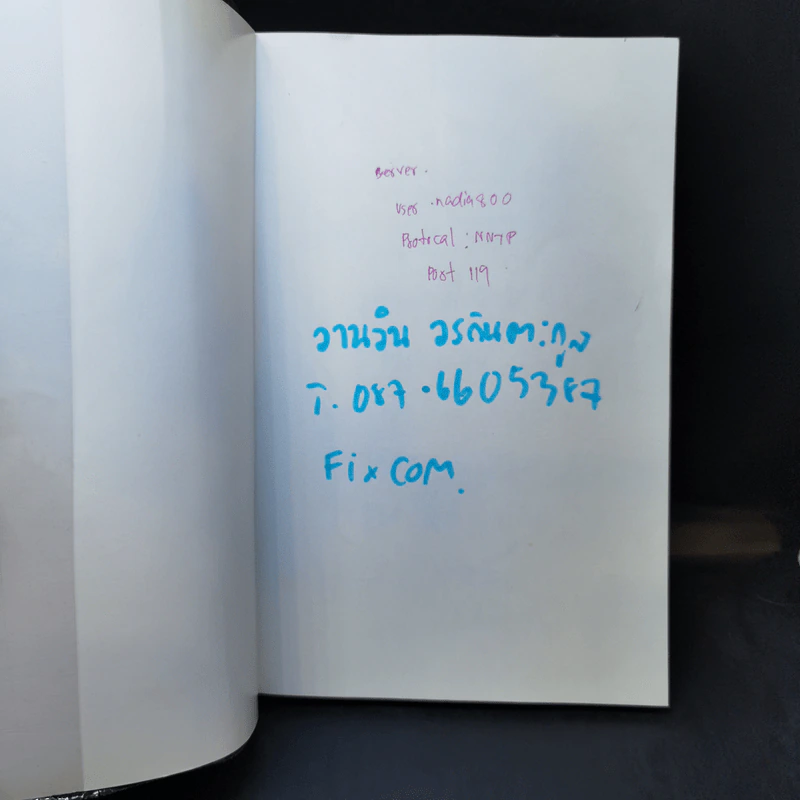 Server.
User . nadia800
Protocal : NNTP
Port 119
วานวิน วรกินตระกูล
T. 087.6605387
Fix COM.